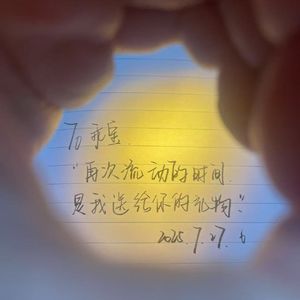 乖宝.
“再次流动的时间.
是我送给你的礼物.”
2025.7.27.